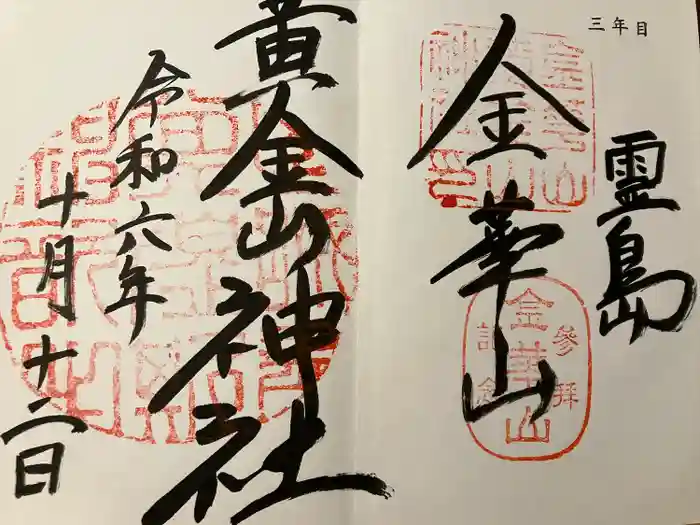 三年目
霊島
金華山
金華山
參拜
記念
黄金山神社
令和六年
十月十二日